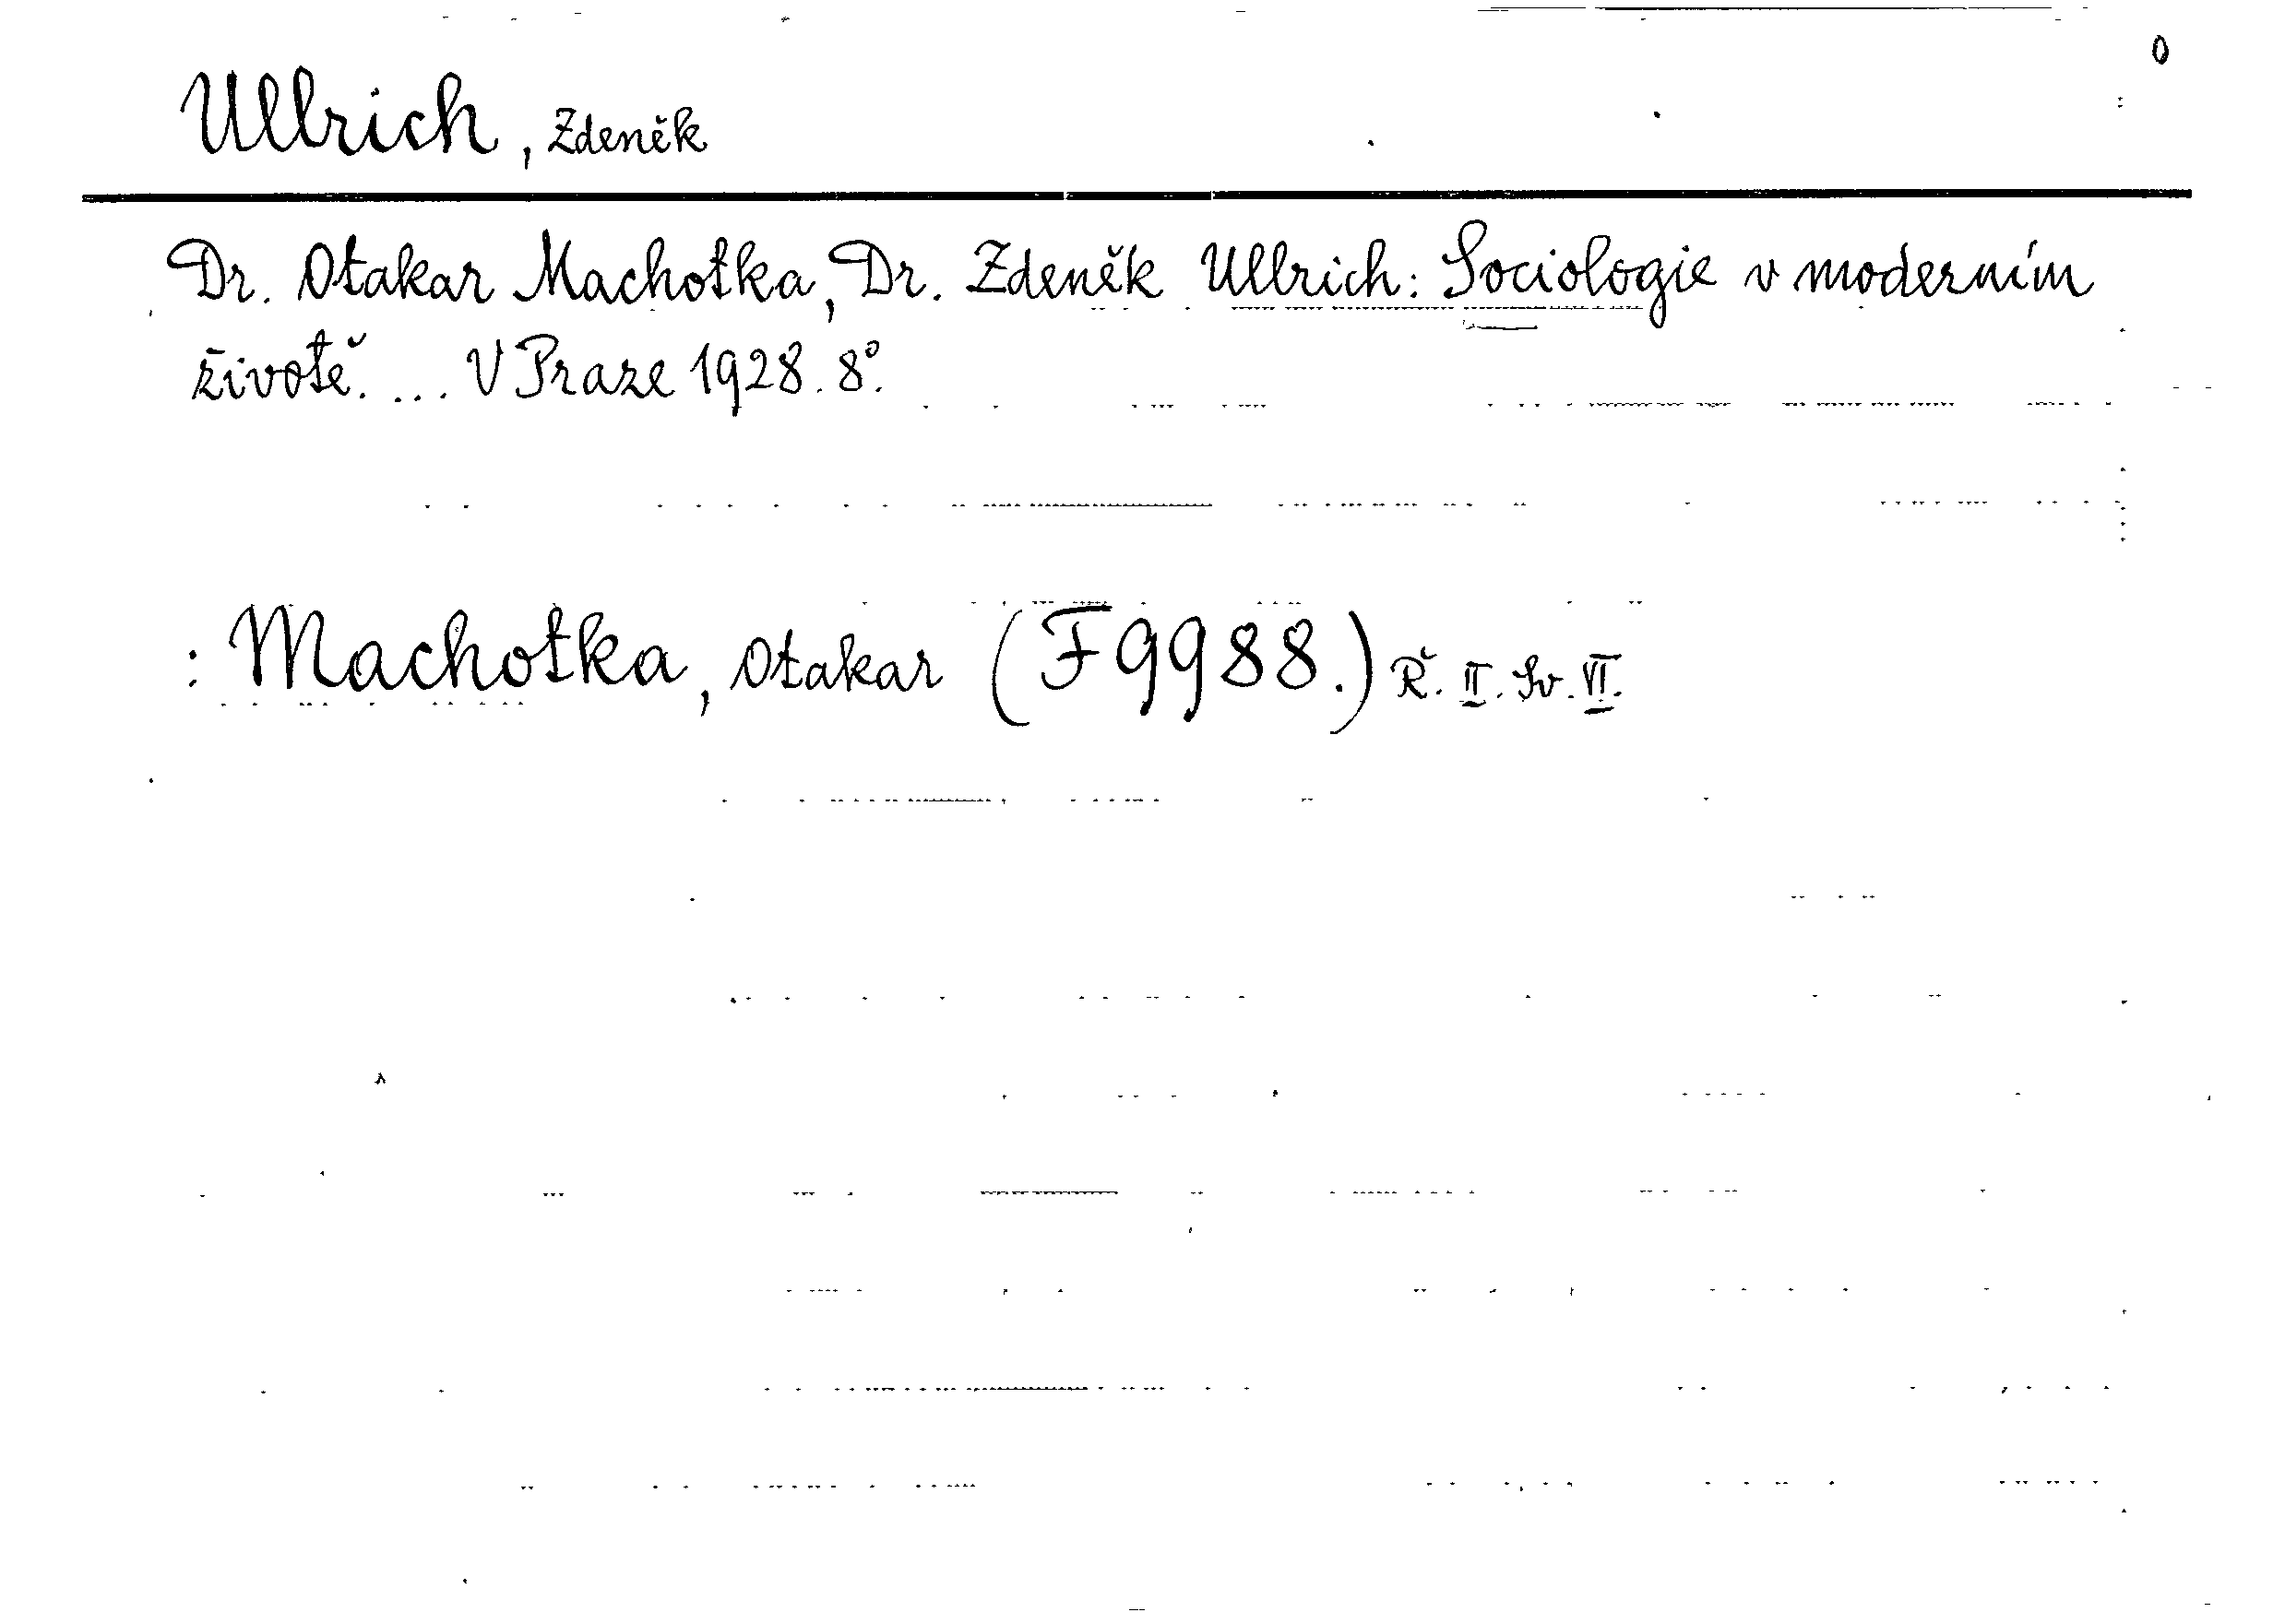 0
Ullrich, Zdeněk
Dr. Otakar Machotka, Dr. Zdeněk Ullrich: Sociologie v moderním
životě. ... V Praze 1928. 8°.
: Machotka, Otakar (F 9988.) Ř. II. Sv. VI.